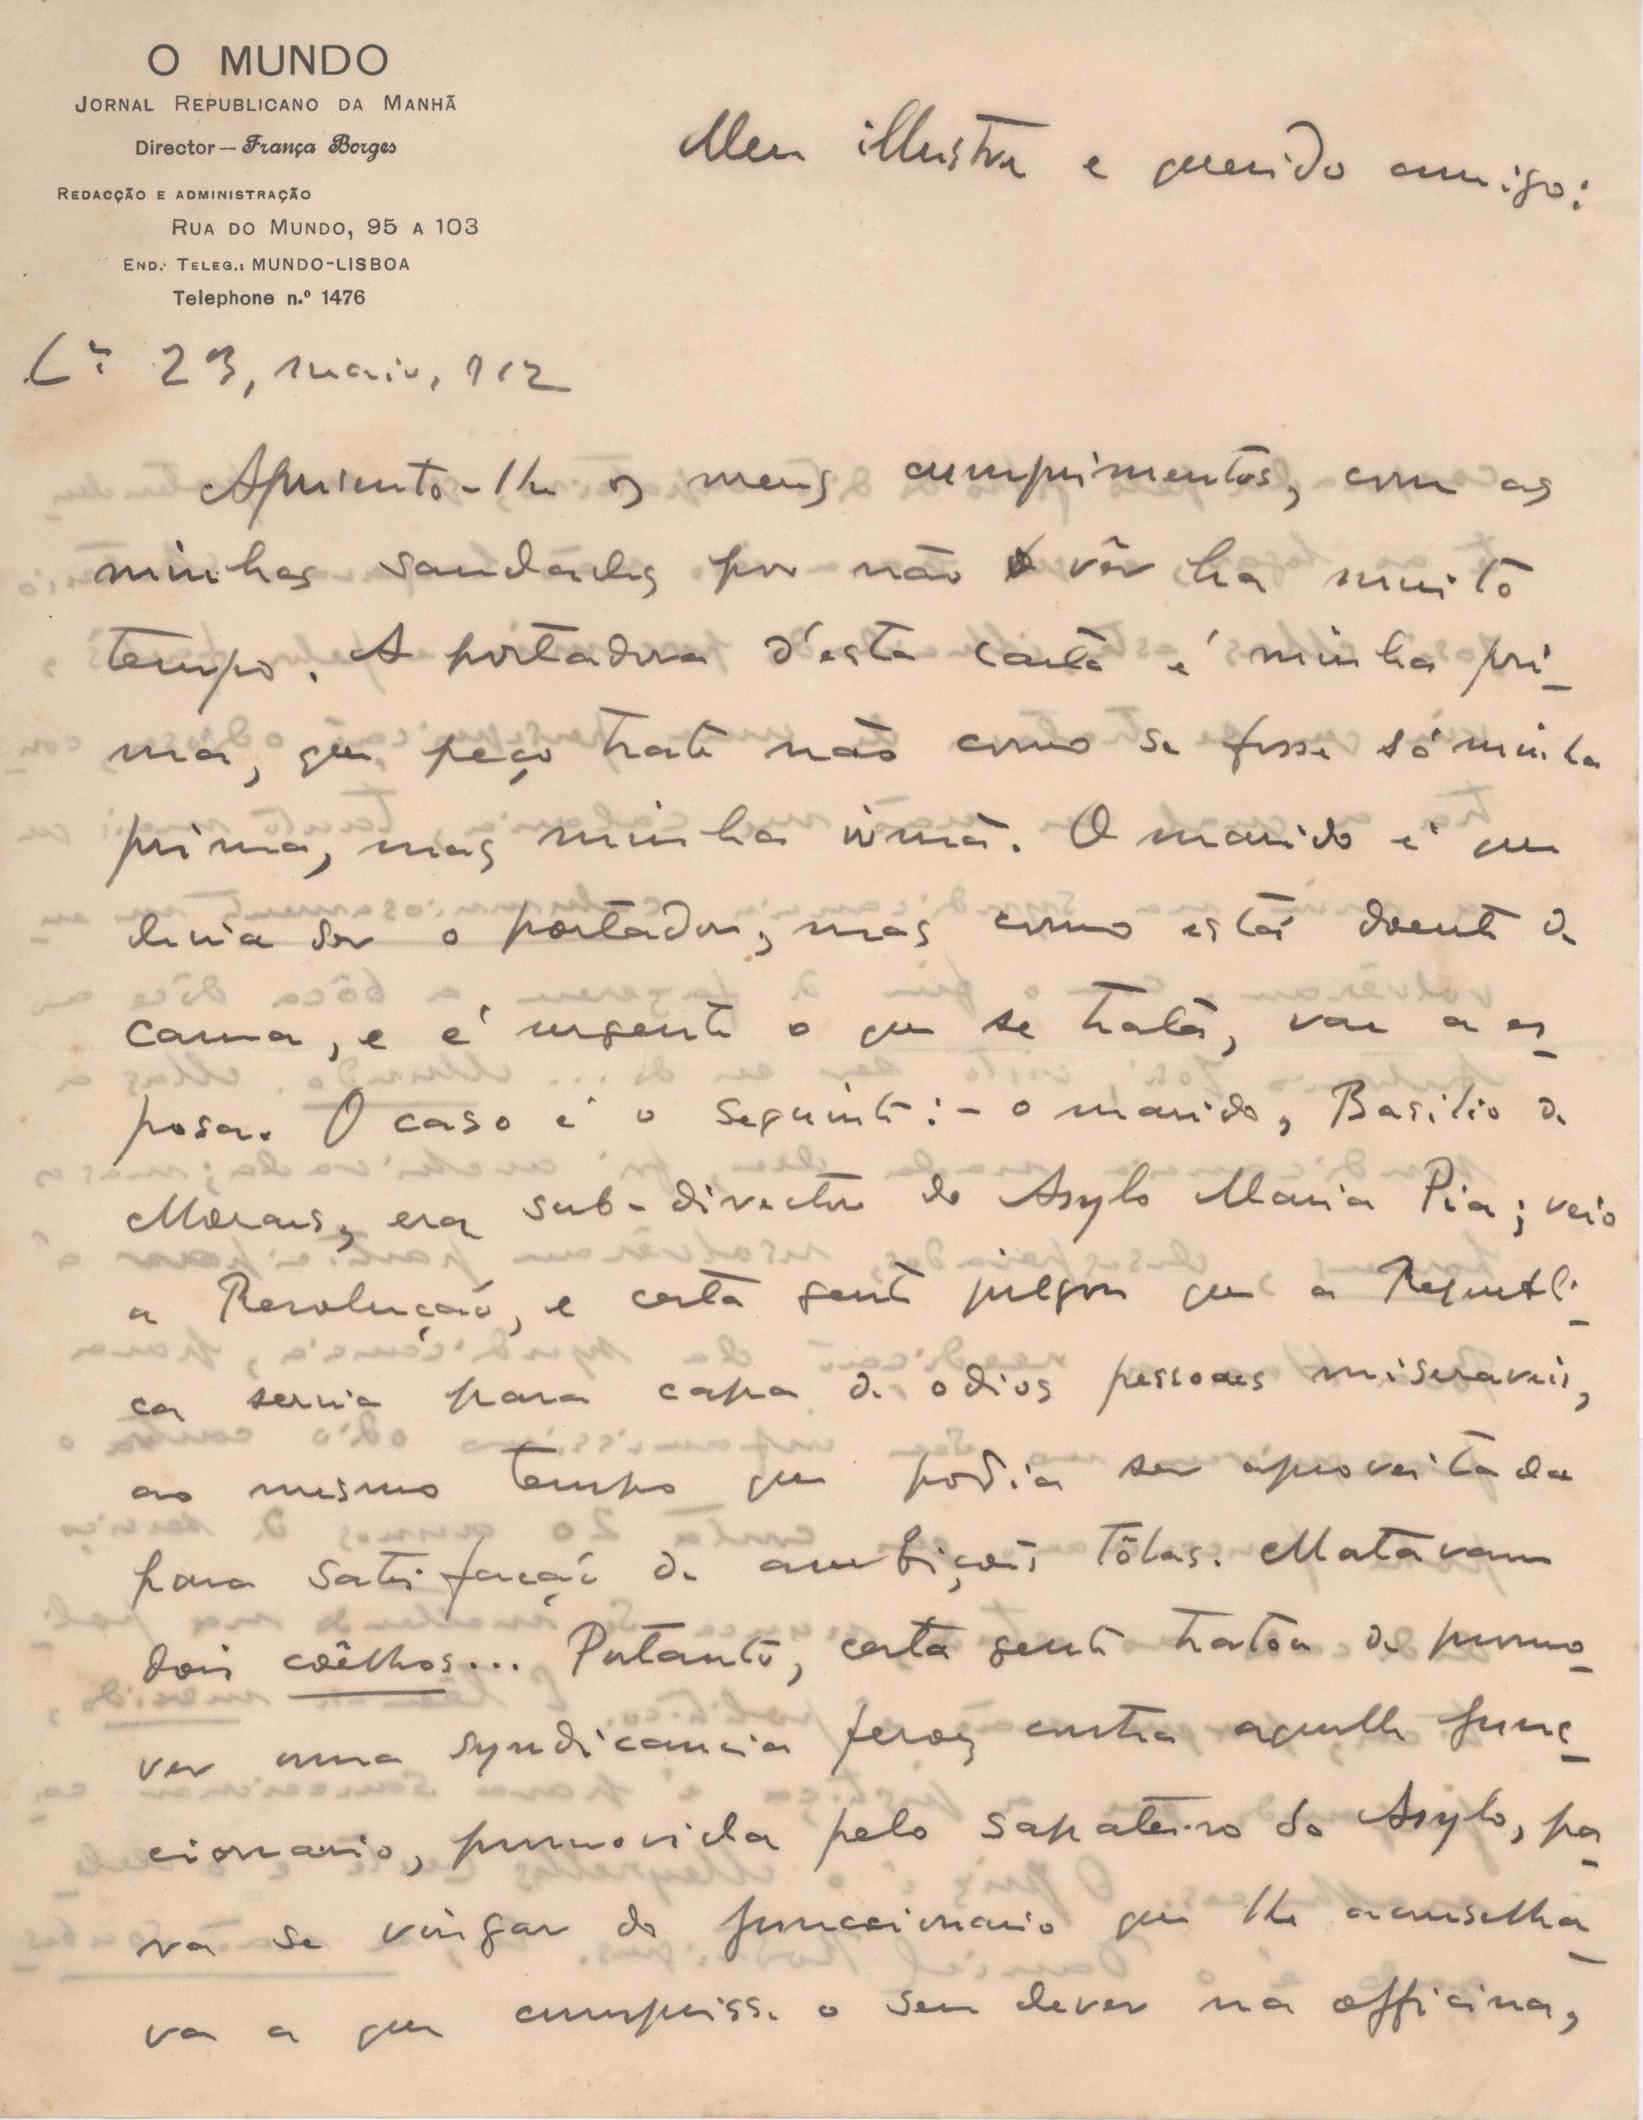 O MUNDO
JORNAL REPUBLICANO DA MANHÃ
Director — França Borges
REDACÇÃO E ADMINISTRAÇÃO
RUA DO MUNDO, 95 A 103
END. TELEG.: MUNDO-LISBOA
Telephone n.º 1476
Meu illustre e querido amigo:
Lx.ª 23, maio, 912
Apresento-lhe os meus cumprimentos, com as
minhas saudades por não o vêr ha muito
tempo. A portadora d'esta carta é minha pri-
ma, que peço trate não como se fosse só minha
prima, mas minha irmã. O marido é que
devia ser o portador, mas como está doente de
cama, e é urgente o que se trata, vae a es-
posa. O caso é o seguinte: - o marido, Basilio de
Moraes, era sub-director do Asylo Maria Pia; veio
a Revolução, e certa gente julgou que a Republi-
ca servia para capa de odios pessoaes miseraveis,
ao mesmo tempo que podia ser aproveitada
para satisfação de ambições tôlas. Matavam
dois coêlhos... Portanto, certa gente tratou de promo-
ver uma syndicancia feroz contra aquelle func-
cionario, promovida pelo sapateiro do Asylo, pa-
ra se vingar do funccionario que lhe aconselha-
va a que cumprisse o seu dever na officina,